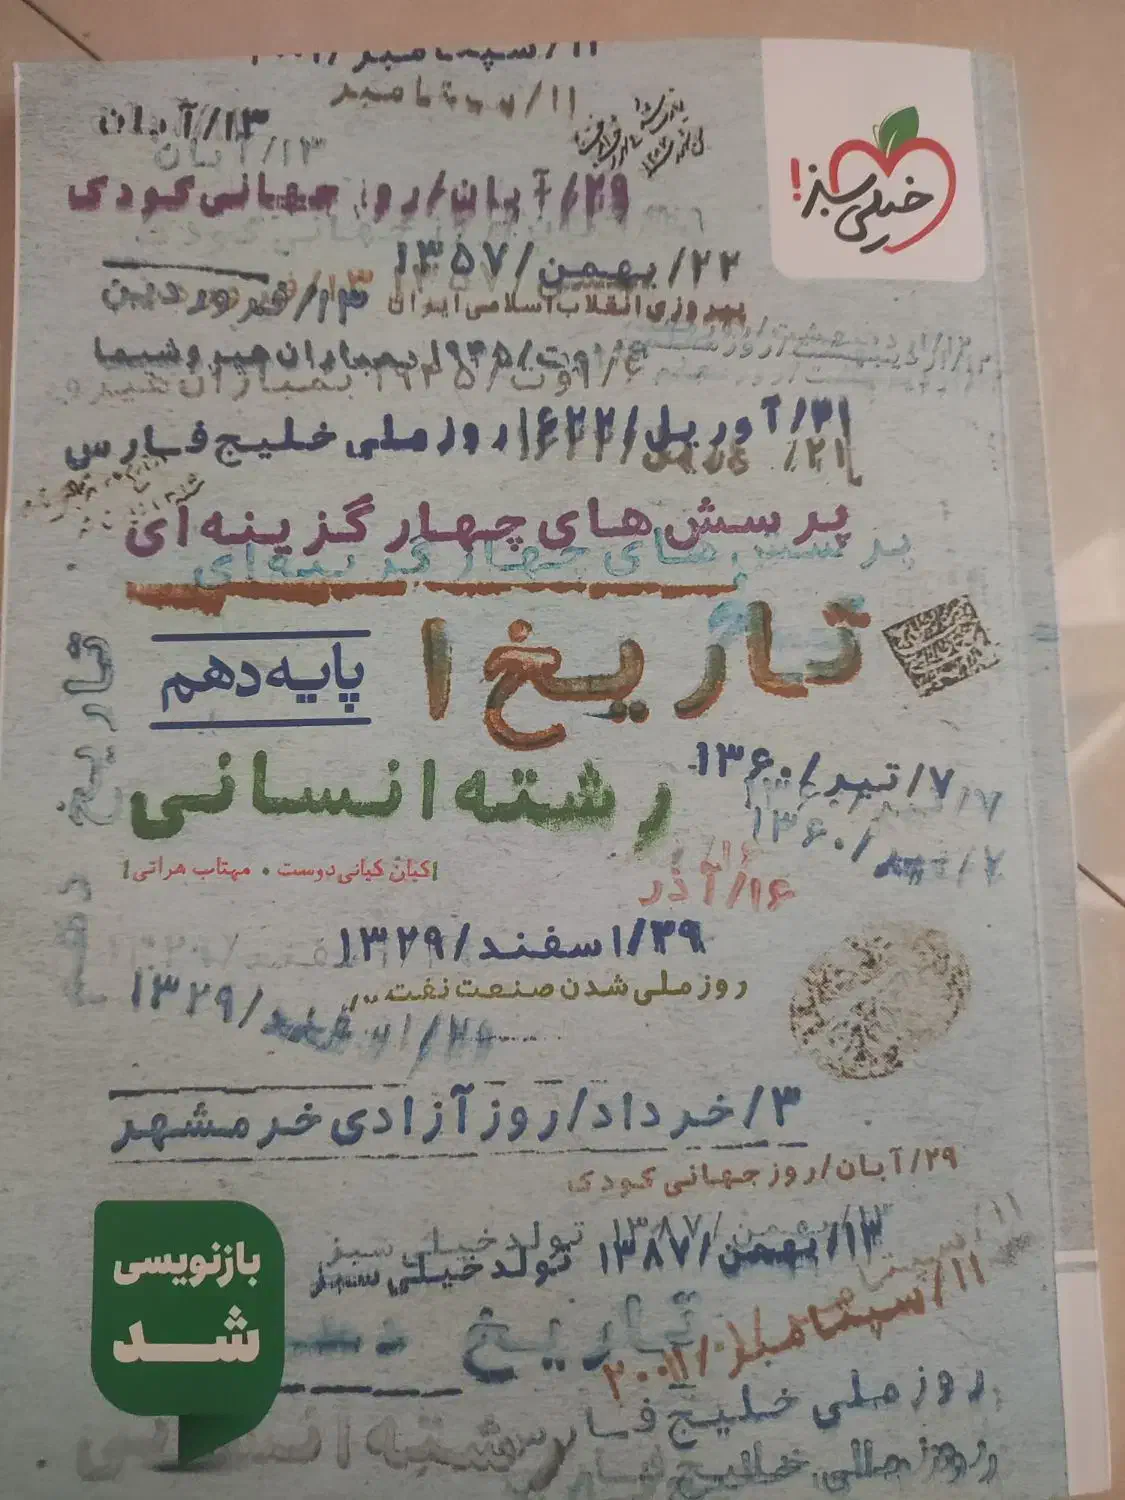 ۱۱/سپتامبر/۲۰۰۱
۱۱/سپتامبر
۱۳/آبان
۱۳/آبان
خیلی سبز!
۲۹/آبان/روز جهانی کودک
۲۲/بهمن/۱۳۵۷
پیروزی انقلاب اسلامی ایران
۱۳/فروردین
۶/اوت/۱۹۴۵ بمباران هیروشیما
۲۱/آوریل/۱۶۲۲/روز ملی خلیج فارس
پرسش‌های چهارگزینه‌ای
پرسش‌های چهارگزینه‌ای
تاریخ ۱
پایه دهم
رشته انسانی
کیان کیانی‌دوست • مهتاب هراتی
تاریخ دهم
۷/تیر/۱۳۶۰
۷/تیر/۱۳۶۰
۱۶/آذر
۲۹/اسفند/۱۳۲۹
روز ملی شدن صنعت نفت
۲۹/اسفند/۱۳۲۹
۳/خرداد/روز آزادی خرمشهر
۲۹/آبان/روز جهانی کودک
۱۳/بهمن/۱۳۸۷ تولد خیلی سبز
۱۳/بهمن/۱۳۸۷ تولد خیلی سبز
۱۱/سپتامبر/۲۰۰۱
بازنویسی
شد
تاریخ
روز ملی خلیج فارس
رشته انسانی
روز ملی خلیج فارس